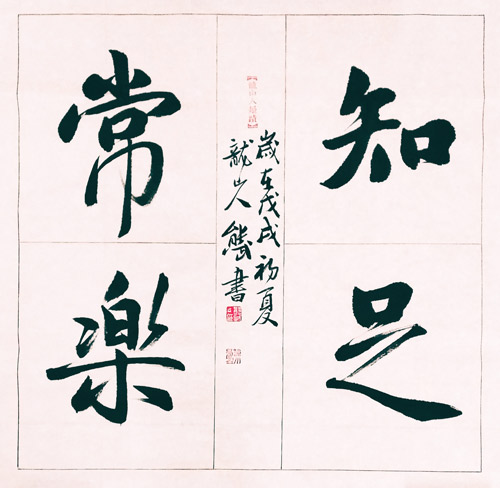 知足
常樂
歲在戊戌初夏
龍山人熊書